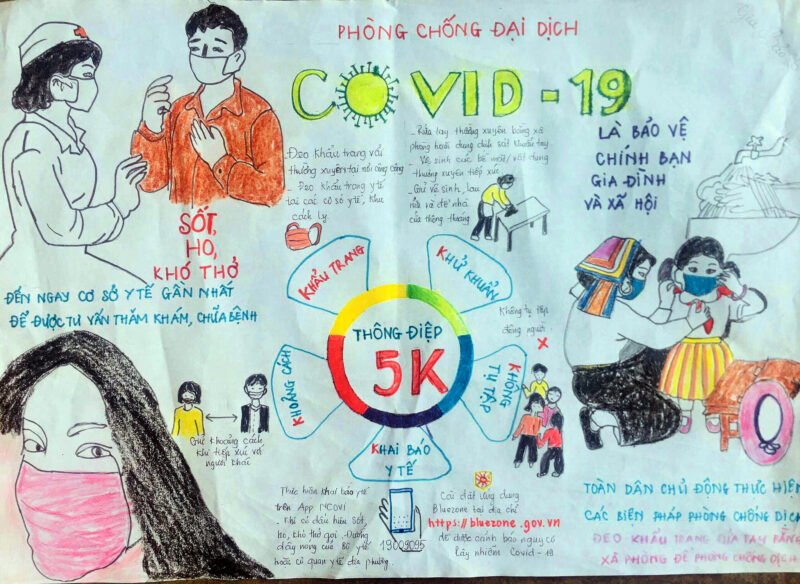 PHÒNG CHỐNG ĐẠI DỊCH
COVID - 19
Đeo khẩu trang vải
thường xuyên tại nơi công cộng
- Đeo khẩu trang y tế
tại các cơ sở y tế, khu
cách ly.
- Rửa tay thường xuyên bằng xà
phòng hoặc dung dịch sát khuẩn tay
- Vệ sinh các bề mặt/ vật dụng
thường xuyên tiếp xúc
- Giữ vệ sinh, lau
rửa và để nhà
cửa thông thoáng
LÀ BẢO VỆ
CHÍNH BẠN
GIA ĐÌNH
VÀ XÃ HỘI
SỐT,
HO,
KHÓ THỞ
ĐẾN NGAY CƠ SỞ Y TẾ GẦN NHẤT
ĐỂ ĐƯỢC TƯ VẤN THĂM KHÁM, CHỮA BỆNH
KHẨU TRANG
KHỬ KHUẨN
THÔNG ĐIỆP
5K
KHOẢNG CÁCH
KHÔNG
TỤ TẬP
KHAI BÁO
Y TẾ
Không tụ tập
đông người
X
Giữ khoảng cách
khi tiếp xúc với
người khác
Thực hiện khai báo y tế
trên App NCOVI
- Khi có dấu hiệu sốt,
ho, khó thở gọi đường
dây nóng của Bộ y tế
hoặc cơ quan y tế địa phương.
19009095
Cài đặt ứng dụng
Bluezone tại địa chỉ
https://bluezone.gov.vn
để được cảnh báo nguy cơ
lây nhiễm Covid - 19
TOÀN DÂN CHỦ ĐỘNG THỰC HIỆN
CÁC BIỆN PHÁP PHÒNG CHỐNG DỊCH
ĐEO KHẨU TRANG RỬA TAY BẰNG
XÀ PHÒNG ĐỂ PHÒNG CHỐNG DỊCH